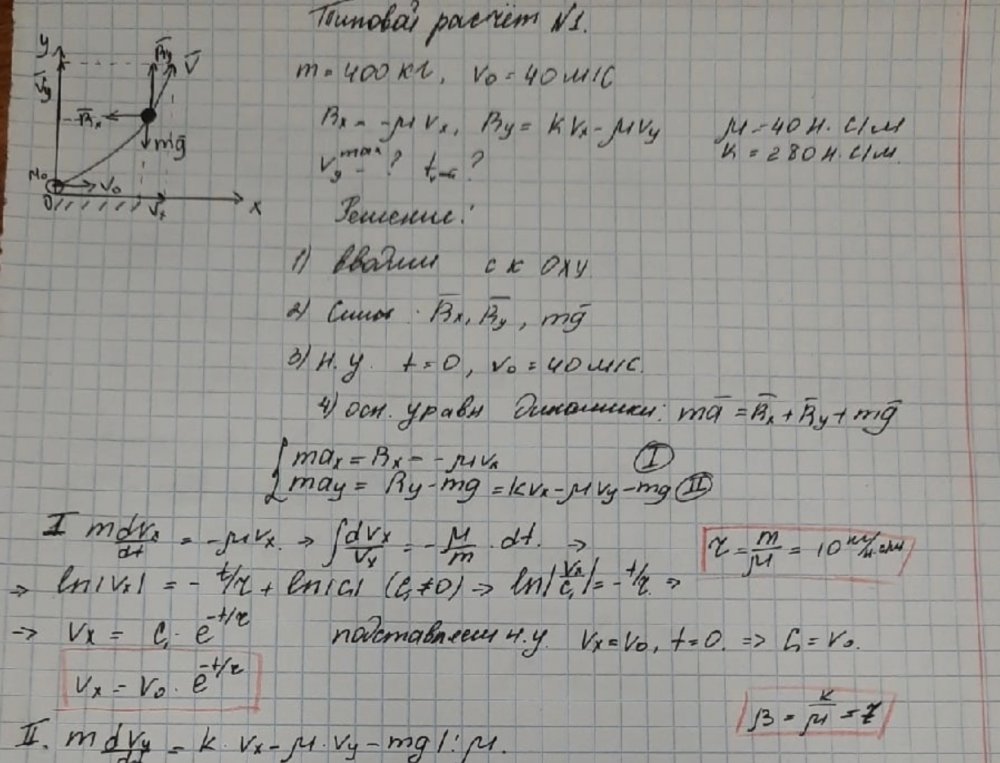 Типовой расчёт №1.
m = 400 кг, v₀ = 40 м/с
Rx = -μvx, Ry = kvx - μvy
μ = 40 Н·с/м
k = 280 Н·с/м.
vy^max = ? t₁ = ?
y
R̄y
V̄
V̄y
R̄x
mḡ
M₀
V₀
0
Vx
x
Решение:
1) вводим ск Oxy
2) Силы: R̄x, R̄y, mḡ
3) н.у. t = 0, v₀ = 40 м/с.
4) осн. уравн динамики: mā = R̄x + R̄y + mḡ
{ max = Rx = -μvx (I)
may = Ry - mg = kvx - μvy - mg (II)
I m dvx/dt = -μvx. ⇒ ∫dvx/vx = -μ/m · dt. ⇒
τ = m/μ = 10
⇒ ln|vx| = -t/τ + ln|C₁| (C₁ ≠ 0) ⇒ ln|vx/C₁| = -t/τ ⇒
⇒ vx = C₁ · e^(-t/τ) подставляем н.у. vx = v₀, t = 0. ⇒ C₁ = v₀.
vx = v₀ · e^(-t/τ)
β = k/μ = 7
II. m dvy/dt = k · vx - μ · vy - mg | : μ.